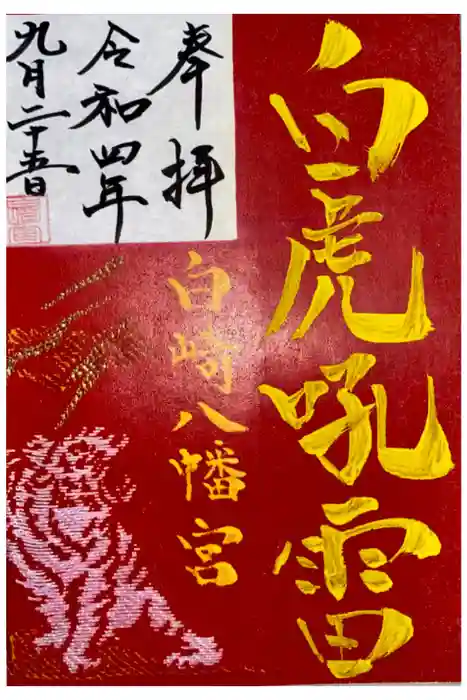 白虎吼雷
奉拝
令和四年
九月二十五日
白崎八幡宮